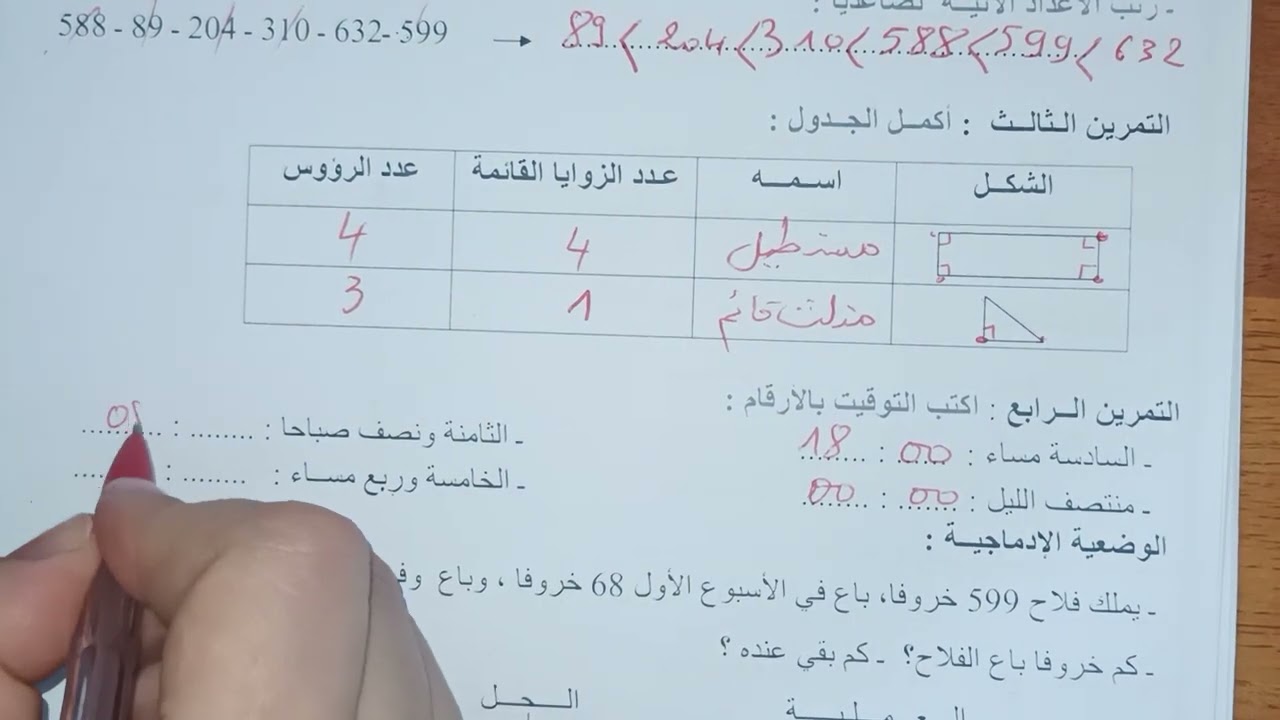 ـ رتب الأعداد الآتية تصاعديا :
588 - 89 - 204 - 310 - 632 - 599 → 89 < 204 < 310 < 588 < 599 < 632
التمرين الثالث : أكمل الجدول :
الشكل اسمه عدد الزوايا القائمة عدد الرؤوس
مستطيل 4 4
مثلث قائم 1 3
التمرين الرابع : اكتب التوقيت بالأرقام :
ـ السادسة مساء : 18 : 00
ـ الثامنة ونصف صباحا : ........ : 08
ـ منتصف الليل : 00 : 00
ـ الخامسة وربع مساء : ........ : ........
الوضعية الإدماجية :
ـ يملك فلاح 599 خروفا، باع في الأسبوع الأول 68 خروفا ، وباع وفي
ـ كم خروفا باع الفلاح؟ ـ كم بقي عنده ؟
العملية الحل